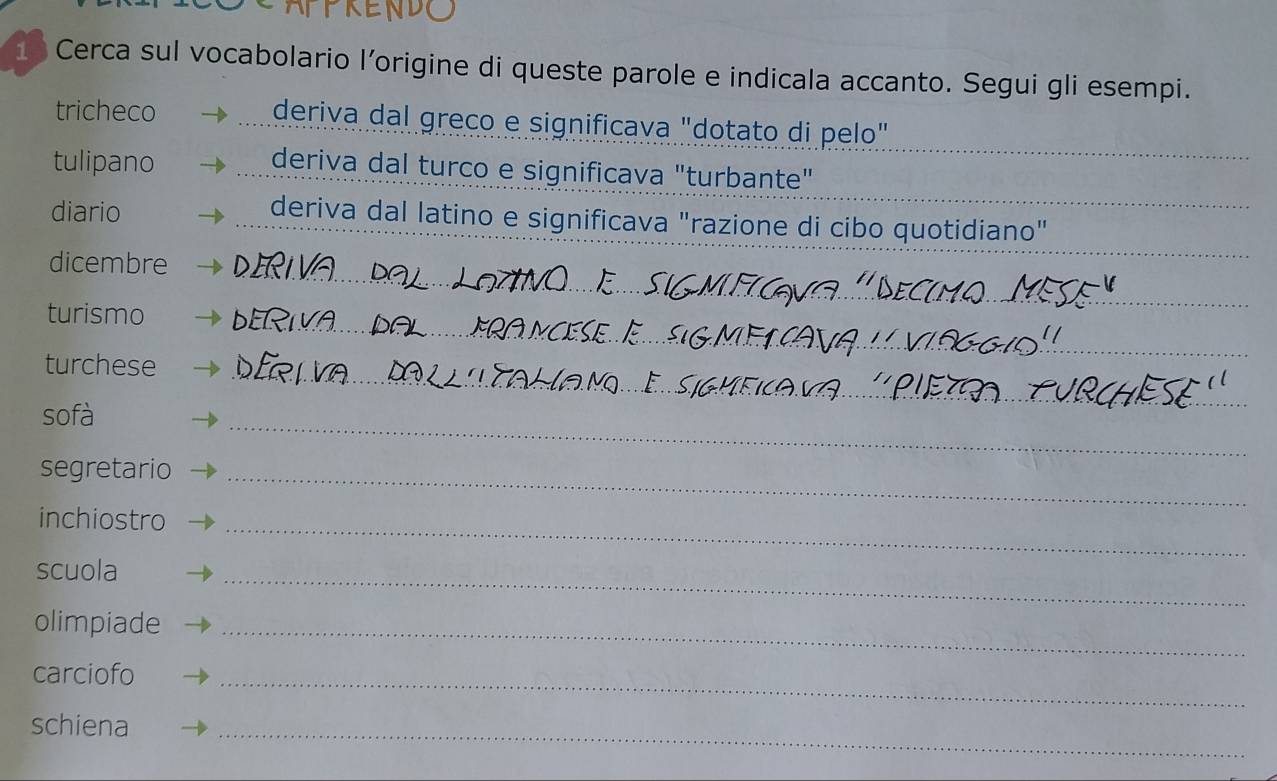 APPRENDO
1 Cerca sul vocabolario l'origine di queste parole e indicala accanto. Segui gli esempi.
tricheco deriva dal greco e significava "dotato di pelo"
tulipano deriva dal turco e significava "turbante"
diario deriva dal latino e significava "razione di cibo quotidiano"
dicembre DERIVA DAL LATINO E SIGNIFICAVA "DECIMO MESE"
turismo DERIVA DAL FRANCESE E SIGNIFICAVA "VIAGGIO"
turchese DERIVA DALL'ITALIANO E SIGNIFICAVA "PIETRA TURCHESE"
sofà
segretario
inchiostro
scuola
olimpiade
carciofo
schiena